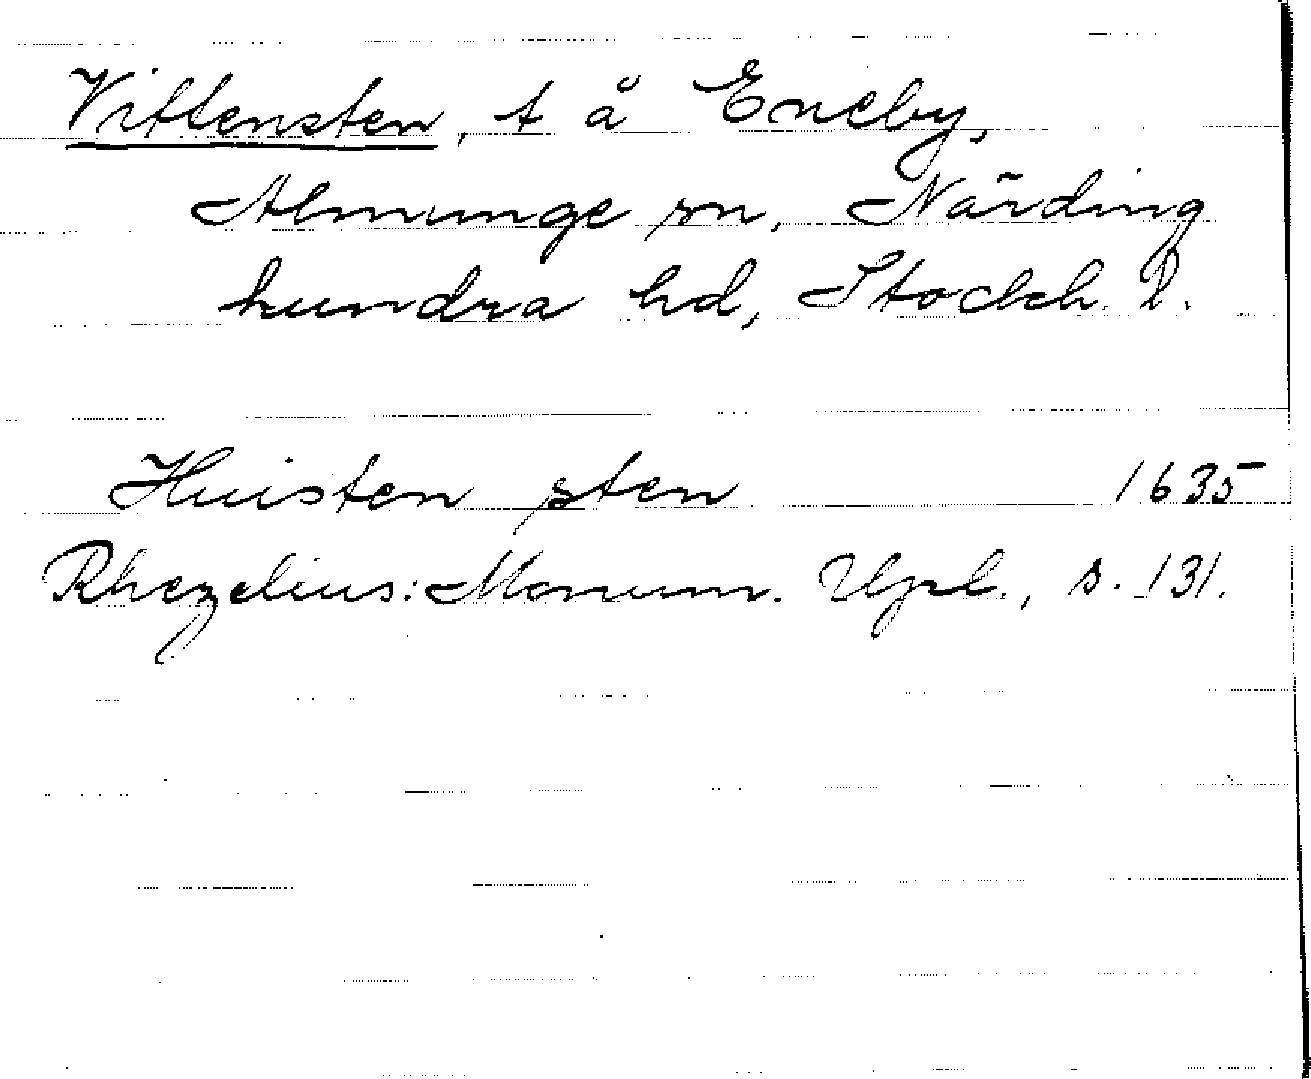 Vittensten, t å Eneby,
Almunge sn, Närding
hundra hd, Stockh. l.
Huisten sten 1635
Rhezelius: Monum. Upl., s. 131.